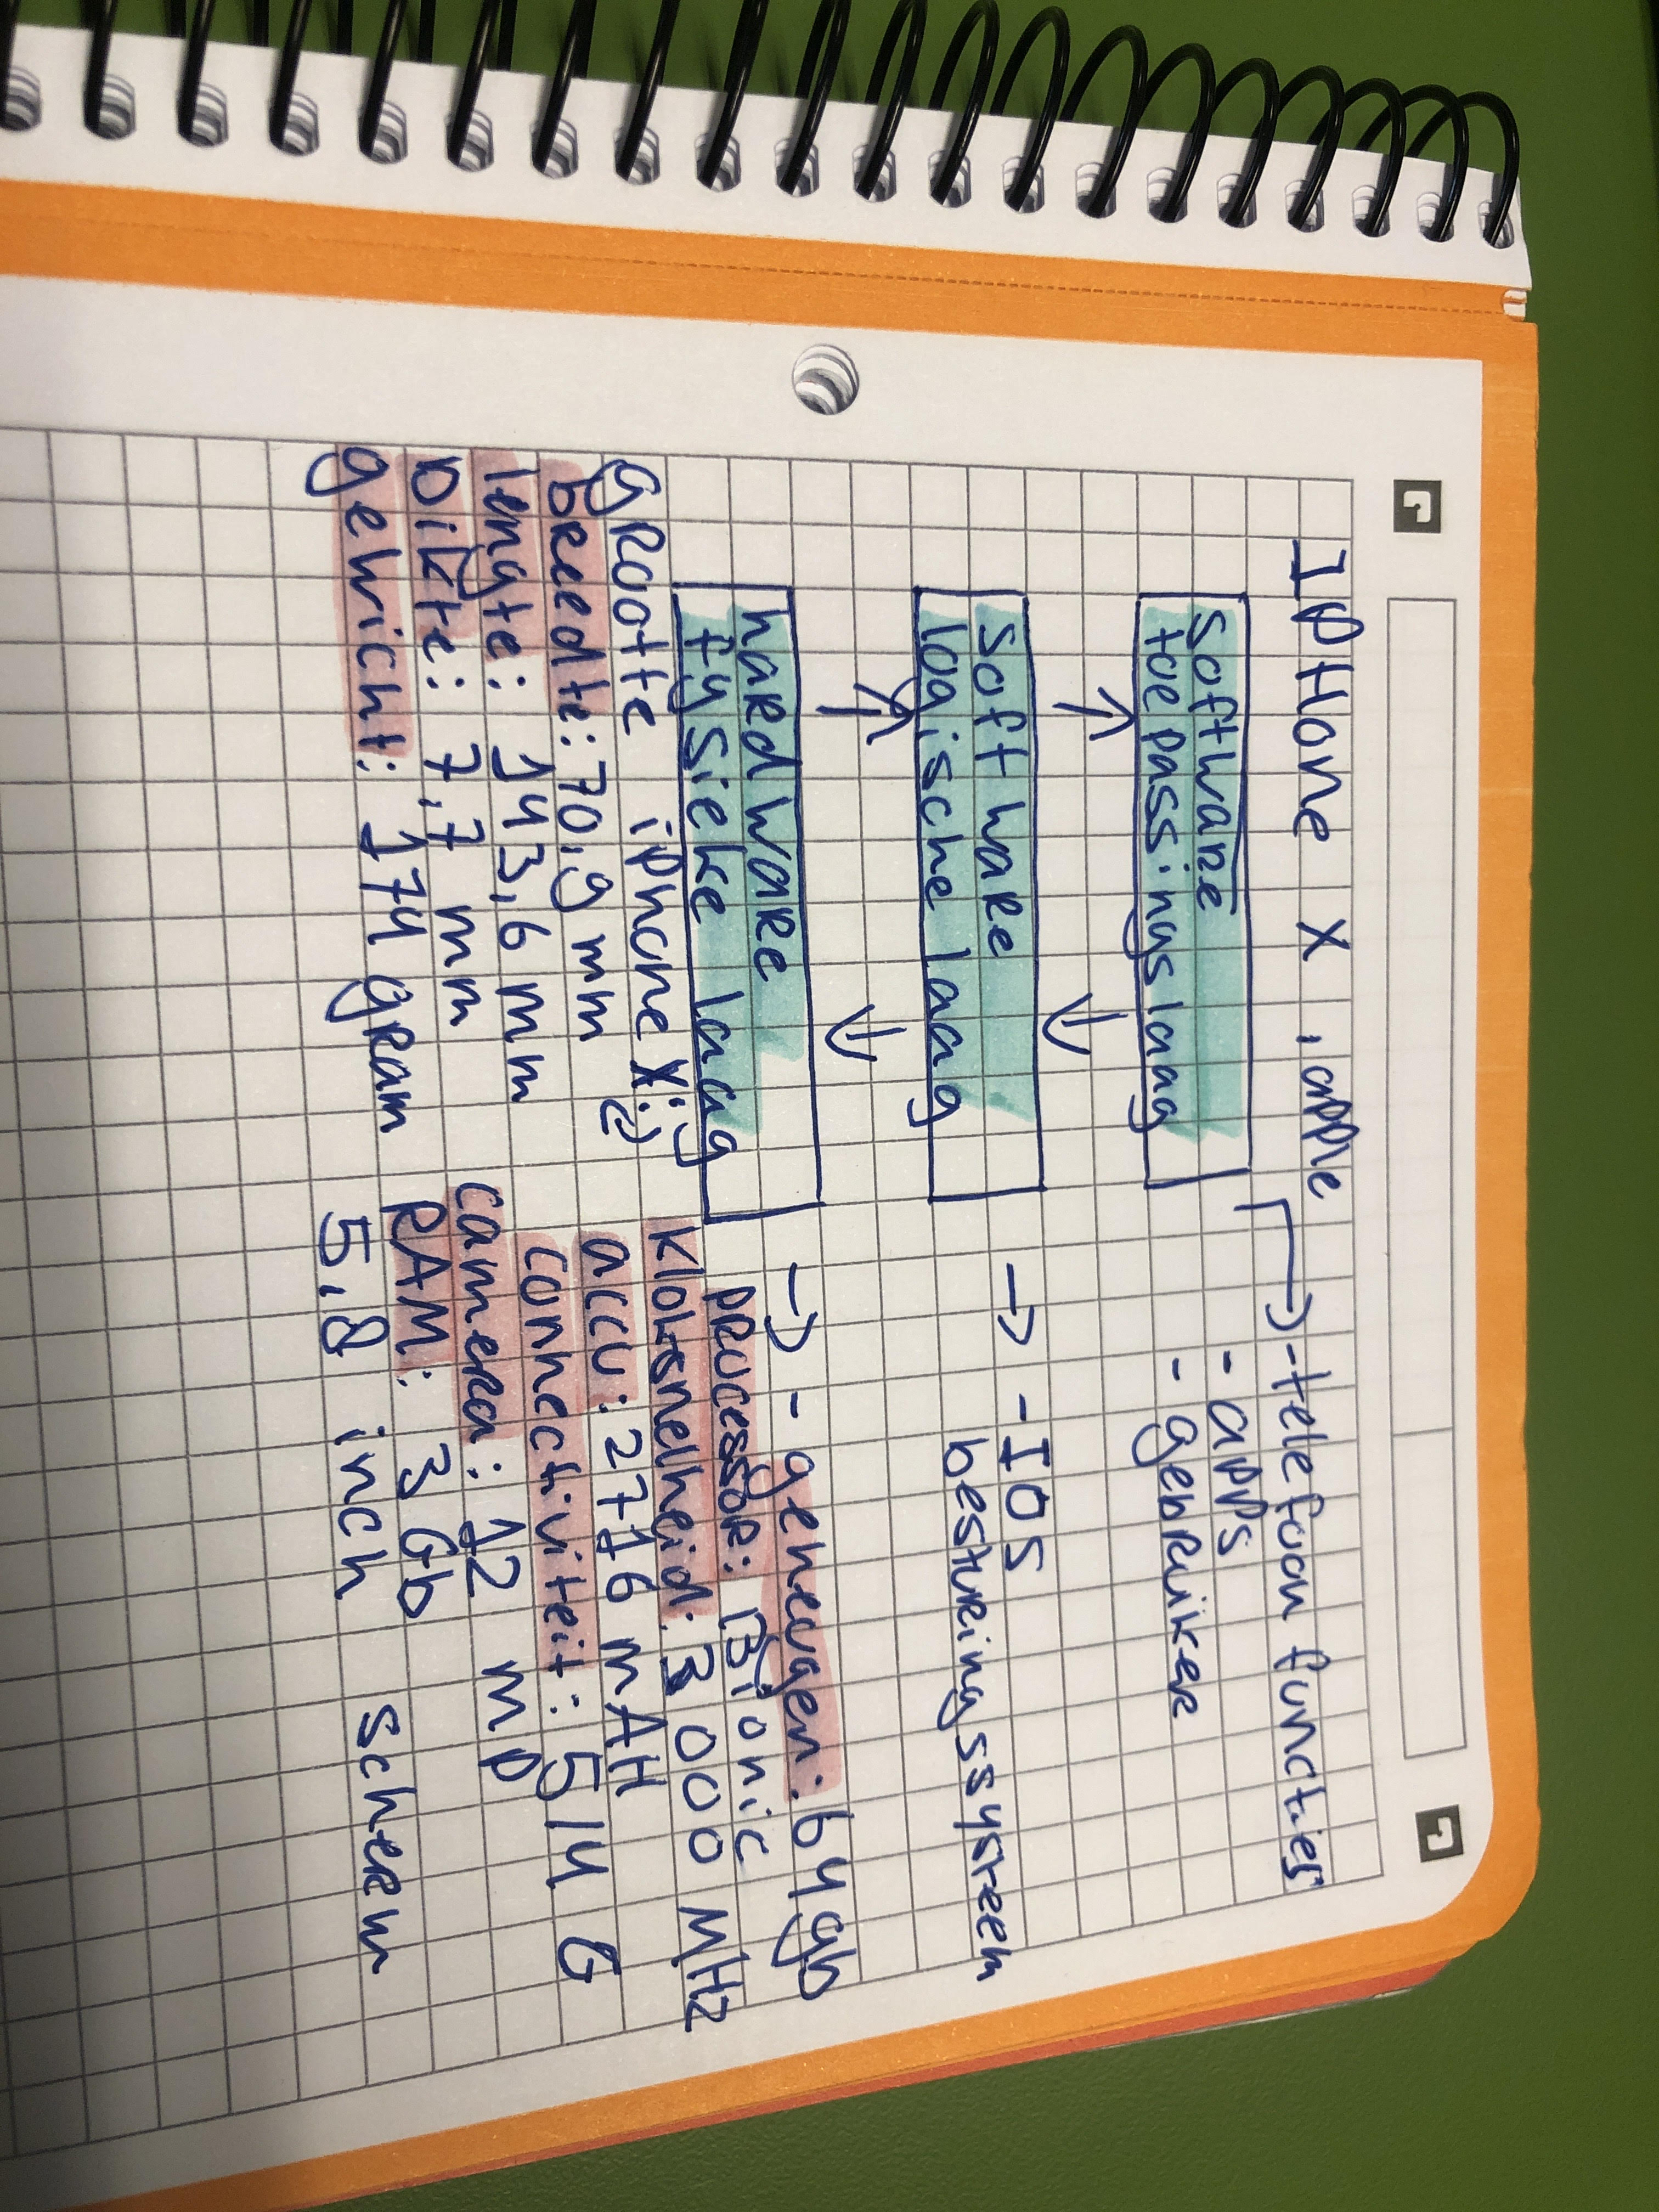 IPHone X , apple
software
toepassingslaag
→ - telefoon functies
- apps
- gebruiker
software
logische laag
→ - IOS
besturingssysteem
hardware
fysieke laag
→ - geheugen: 64gb
processor: Bionic
kloksnelheid: 3000 MHz
accu: 2716 mAH
connectiviteit: 5/4 G
camera: 12 mp
RAM: 3 Gb
5,8 inch scherm
grootte iphone X:
breedte: 70,9 mm
lengte: 143,6 mm
dikte: 7,7 mm
gewicht: 174 gram